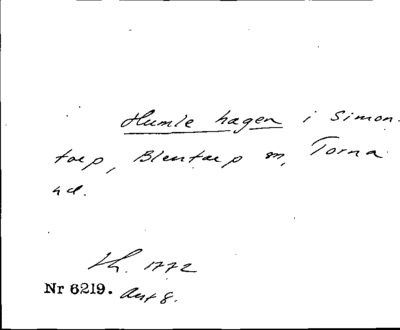 Humle hagen i Simon-
torp, Blentarp sn, Torna
hd.
Lh. 1772
Nr 6219. Avt 8.